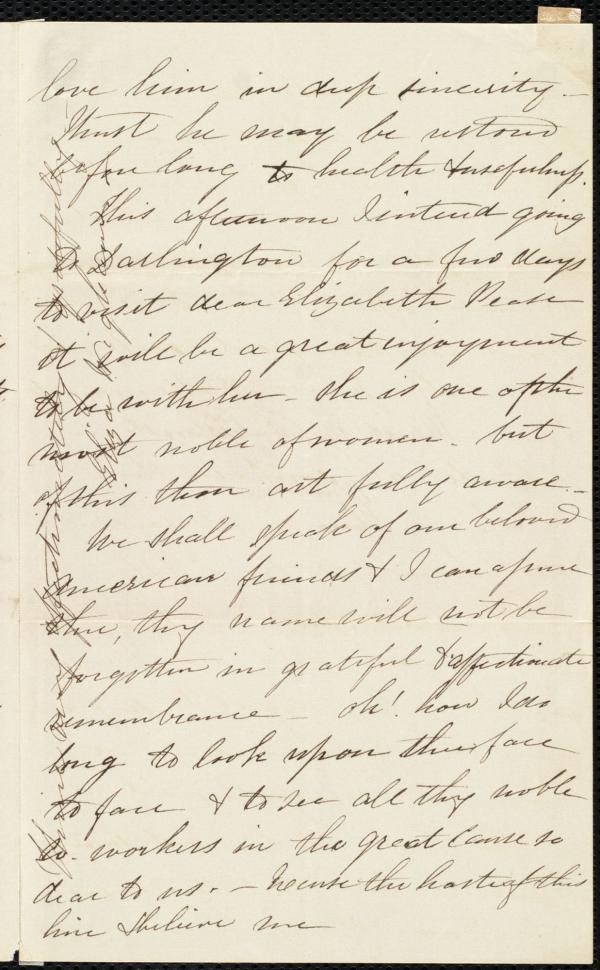 love him in deep sincerity –
I trust he may be restored
before long to health & usefulness.
This afternoon I intend going
to Darlington for a few days
to visit dear Elizabeth Pease
it will be a great enjoyment
to be with her – She is one of the
most noble of women – but
of this thou art fully aware –
We shall speak of our beloved
American friends & I can assure
thee, thy name will not be
forgotten in grateful & affectionate
remembrance – oh! how I do
long to look upon thee face
to face & to see all thy noble
co-workers in the great Cause so
dear to us. – Excuse the haste of this
line & believe me